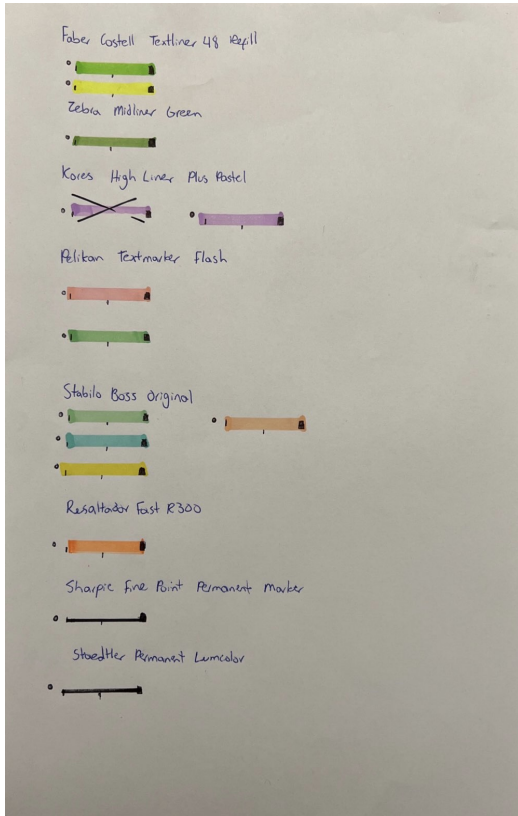 Faber Castell Textliner 48 Refill
Zebra Midliner Green
Kores High Liner Plus Pastel
Pelikan Textmarker Flash
Stabilo Boss Original
Resaltador Fast R300
Sharpie Fine Point Permanent Marker
Staedtler Permanent Lumcolor